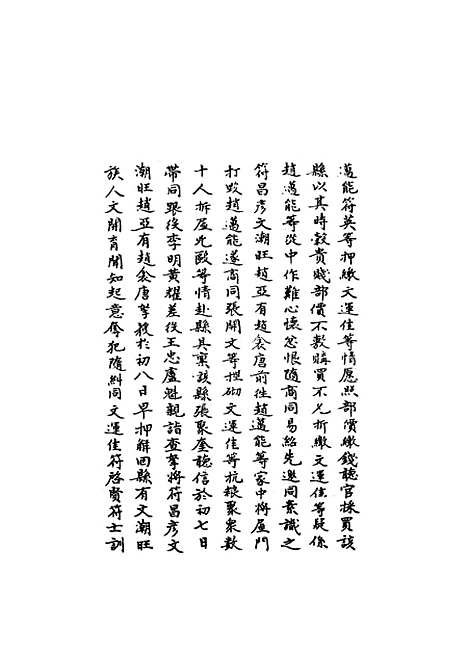 邁能符英等押繳文運佳等情愿照部價繳錢聽官採買該
縣以其時穀貴賤部價不敷購買不允折繳文運佳等疑係
趙邁能等從中作難心懷忿恨隨商同易紹先邀同素識之
符昌彥文潮旺趙亞有趙衾唐前往趙邁能等家中拆屋門
打毀趙邁能遂商同張開文等捏砌文運佳等抗糧聚眾數
十人拆屋兇毆等情赴縣具稟該縣張聚奎聽信於初七日
帶同跟後李明黃耀差役王忠盧魁親詣查拏將符昌彥文
潮旺趙亞有趙衾唐拏獲於初八日早押解回縣有文潮旺
族人文開育聞知起意奪犯隨糾同文運佳符啓賢符士訓